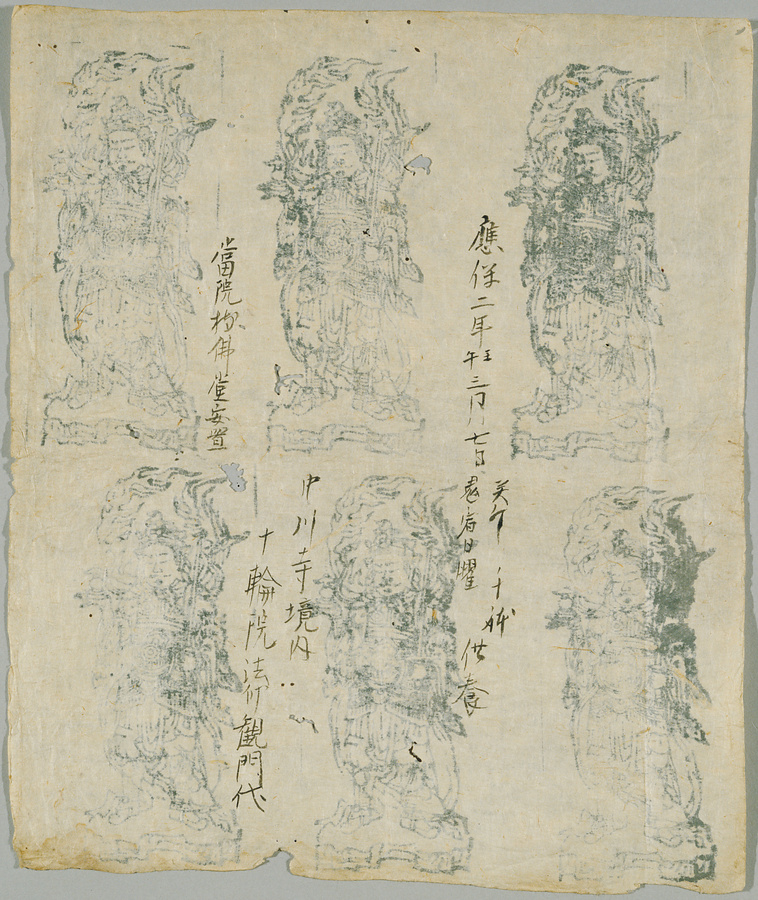 應保二年壬午三月七日癸卯
鬼宿日曜 千躰供養
中川寺境内
十輪院法行観門代
當院 佛堂安置